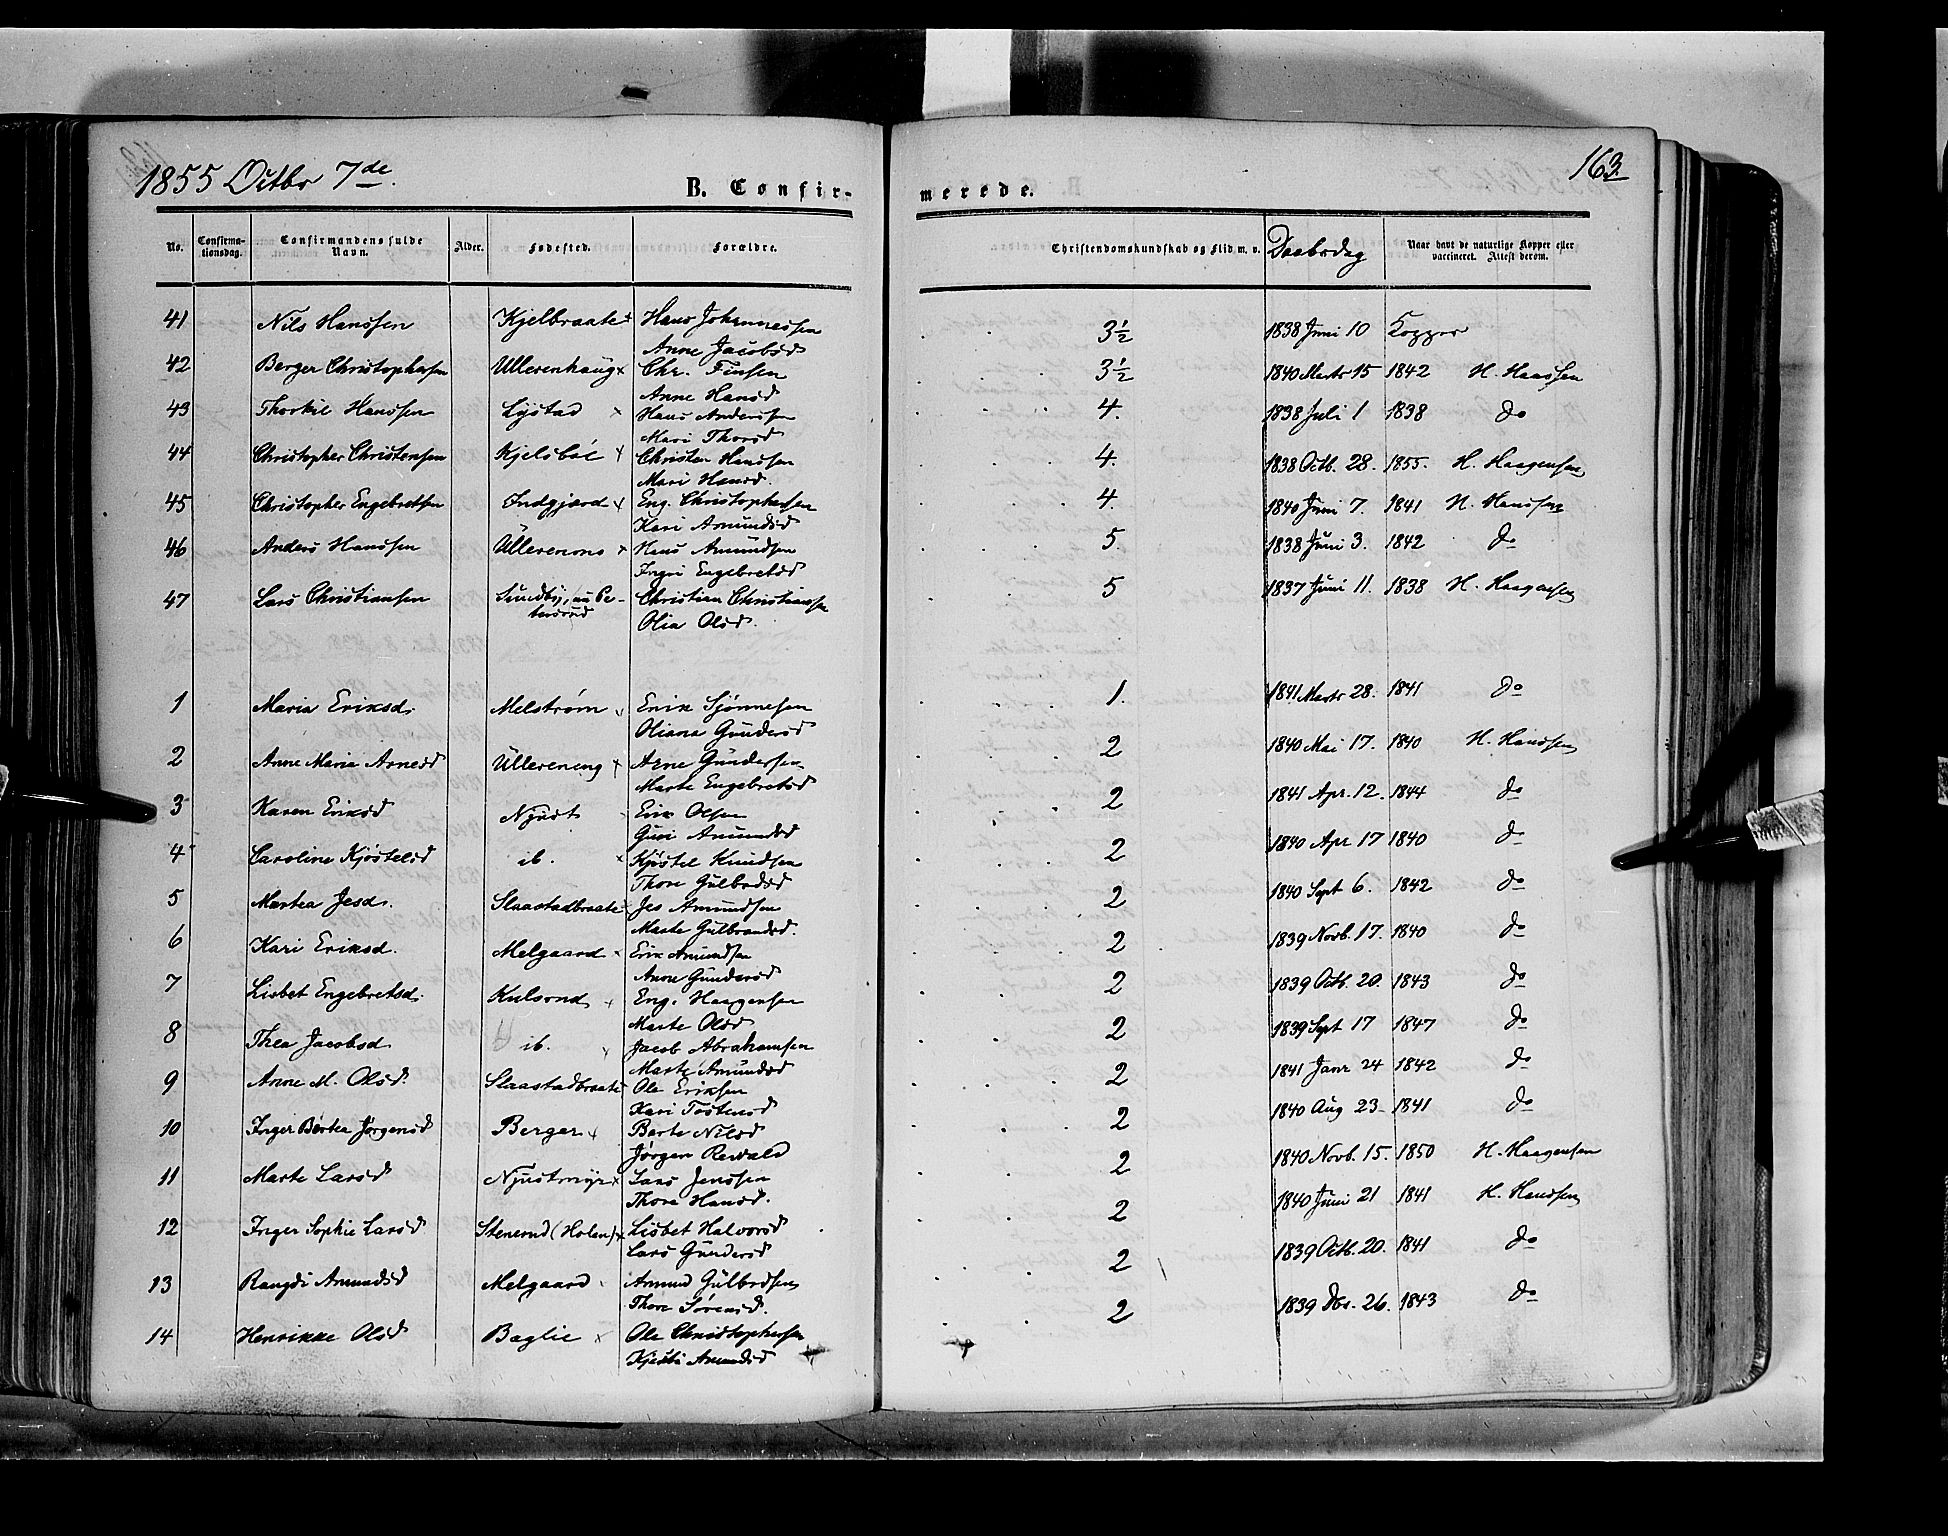 1855 Octbr 7de.
163.
B. Confir-
merede.
No. Confirma-tionsdag. Confirmandens fulde Navn. Alder. Fødested. Forældre. Christendomskundskab og Flid m. v. Daabsdag Naar havt de naturlige Kopper eller vaccineret. Attest derom.
41 Nils Hanssen Kjelbraate Hans Johannessen 3½ 1838 Juni 10 Kopper
Anne Jacobsd
42 Berger Christophersen Ullerenhaug x Chr. Finsen 3½ 1840 Marts 15 1842 H. Hanssen
Anne Hansd
43 Thorkil Hanssen Lystad x Hans Anderssen 4. 1838 Juli 1 1838 do
Mari Thorsd
44 Christopher Christensen Kjelsböl x Christen Hanssen 4. 1838 Octb. 28. 1855. H. Haagensen
Mari Hansd.
45 Christopher Engebretsen Indgjærd x Eng. Christophersen 4. 1840 Juni 7. 1841 H. Hanssen
Kari Amundsd
46 Anders Hanssen x Hans Amundsen 5. 1838 Juni 3. 1842 do
Ingri Engebretsd
47 Lars Christiansen Sundby, nu Pe- Christian Christiansen 5 1837 Juni 11. 1838 H. Haagensen
tersrud Olia Olsd.
1 Maria Eriksd. Melstrøm x Erik Sjønnesen 1. 1841 Marts 28. 1841 do
Oliana Gundersd
2 Anne Maria Arnesd Ullereneng x Arne Gundersen 2 1840 Mai 17. 1840 H. Hanssen
Marte Engebretsd
3 Karen Eriksd Njust Erik Olsen 2 1841 Apr. 12. 1844 do
Guri Amundsd
4 Caroline Kjöstelsd ib. x Kjöstel Knudsen 2 1840 Apr 17 1840 do
Thore Gulbrdsd
5 Martea Jesd. Slaastadbraate Jes Amundsen 2 1840 Sept 6. 1842 do
Marte Gulbrandsd.
6 Kari Eriksd. Melgaard x Erik Amundsen 2 1839 Novb. 17. 1840 do
Anne Gundersd
7 Lisbet Engebretsd. Kulsrud x Eng. Haagensen 2 1839 Octb. 20. 1843 do
Marte Olsd
8 Thea Jacobsd ib. x Jacob Abrahamsen 2 1839 Sept 17 1847 do
Marte Amundsd
9 Anne M. Olsd. Slaastadbraate Ole Eriksen 2 1841 Janr 24 1842 do
Kari Tostensd
10 Inger Bertea Jørgensd Berger x Berte Nilsd 2 1840 Aug 23 1841 do
Jørgen Rewald
11 Marte Larsd Njustmyr x Lars Jenssen 2 1840 Novb. 15. 1850 H. Haagensen
Thore Hansd.
12 Inger Sophie Larsd Stenerud (Holen) x Lisbet Halvorsd 2 1840 Juni 21 1841 H. Hanssen
Lars Gundersd
13 Rangdi Amundsd Melgaard Amund Gulbrdsen 2 1839 Octb. 20. 1841 do
Thore Sörensd.
14 Henrikke Olsd Baglie x Ole Christophersen 2 1839 Dbr. 26. 1843 do
Kjersti Amundsd